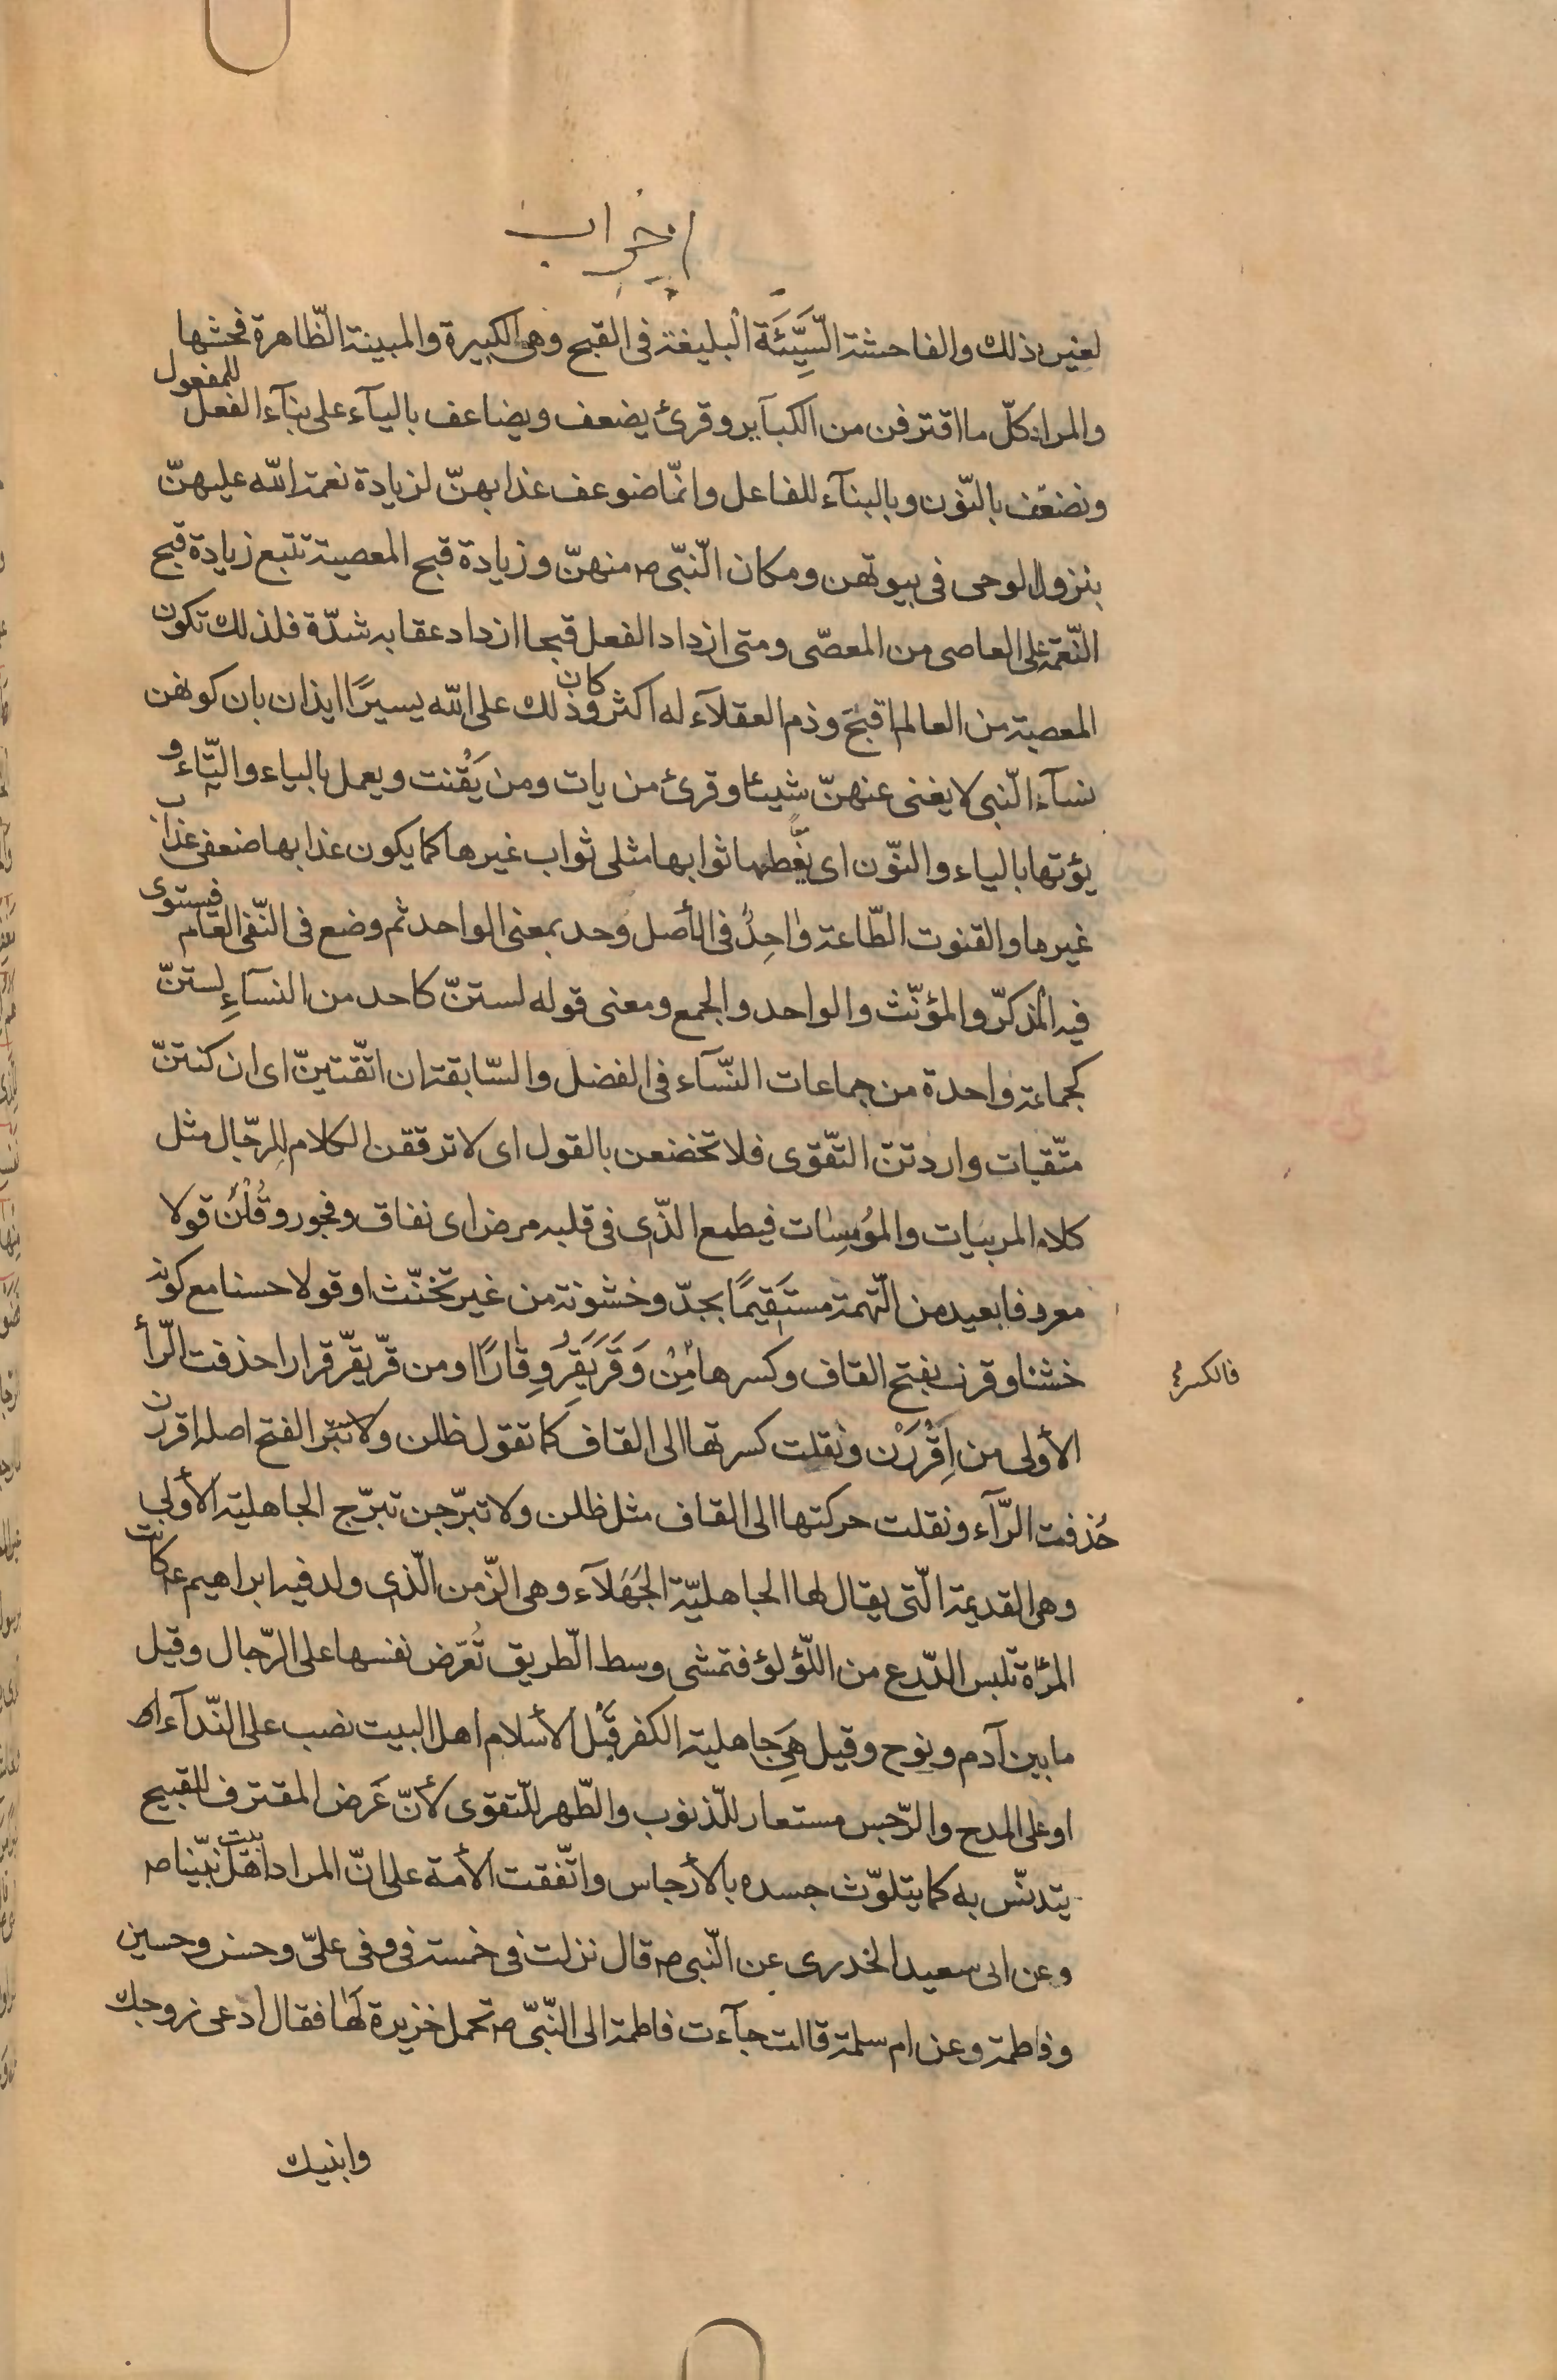 احزاب
لغير ذلك والفاحشة السَّيِّئَة البليغة فى القبح وهى الكبيرة والمبينة الظّاهرة فحشها
والمراد كلّ ما اقترفن من الكبآير وقرئ يضعف ويضاعف باليآء على بنآء الفعل للمفعول
ونضعّف بالنّون وبالبنآء للفاعل وانّما ضوعف عذابهنّ لزيادة نعمة الله عليهنّ
بنزول الوحى فى بيوتهن ومكان النّبىّ ص منهنّ وزيادة قبح المعصية تتبع زيادة قبح
النّعمة على العاصى من المعصّى ومتى ازداد الفعل قبحا ازداد عقابه شدّة فلذلك تكون
المعصية من العالم اقبحَ وذم العقلآء له اكثر وكان ذلك على الله يسيرًا ايذان بان كونهن
نسآء النّبى لا يغنى عنهنّ شيئا وقرئ من يات ومن يَقْنت ويعمل بالياء والتّاء و
يؤتها بالياء والنّون اى يعطها ثوابها مثلى ثواب غيرها كما يكون عذابها ضعفى عذاب
غيرها والقنوت الطّاعة واحِدُ فى الأصل وحد بمعنى الواحد ثم وضع فى النّفى العام فيستوى
فيه المذكرّ والمؤنّث والواحد والجمع ومعنى قوله لستنّ كاحد من النسآءِ لستنّ
كجماعة واحدة من جماعات النّسآء فى الفضل والسّابقة ان اتّقتينّ اى ان كنتنّ
متّقيات واردتنّ التّقوى فلا تخضعن بالقول اى لا ترققن الكلام للرجّال مثل
كلام المريبات والمُومِسات فيطمع الذّى فى قلبه مرض اى نفاق وفجور وقُلْنَ قولا
معروفا بعيد من التّهمة مستَقِيمًا بجدّ وخشونة من غير تخنّث او قولا حسنا مع كونه
خشنا وقرن بفتح القاف وكسرها مِنْ وَقَرَ يَقِرُ وِقارًا او من قرّ يقرّ قرارا حذفت الرّأ
فالكسر
الأولى من اِقْرَرْن ونقلت كسرتها الى القاف كما تقول ظلن و الفتح اصله اقررن
حُذفت الرّآء ونقلت حركتها الى القاف مثل ظلن ولا تبرّجن تبرّج الجاهليّة الأولى
وهى القديمة الّتى يقال لها الجاهليّة الجَهَلآء وهى الزّمن الّذى ولد فيه ابراهيم ع كانت
المرأة تلبس الدّرع من اللّؤلؤ فتمشى وسط الطّريق تُعرّض نفسها على الرّجال وقيل
ما بين آدم ونوح وقيل هَىَ جاهلية الكفر قَبْل الأسلام اهل البيت نصب على النّدآء
او على المدح والرّجس مستعار للّذنوب والطّهر للّتقوى لأنّ عَرض المقترف للقبيح
يتدنّس به كما يتلوّث جسده بالأرجاس واتّفقت الأمة على انّ المراد اهل بيت نبيّنا ص
وعن ابى سعيد الخدرى عن النّبى ص قال نزلت فى خمسة فى وفى علىّ وحسن وحسين
وفاطمة وعن ام سلمة قالت جآءت فاطمة الى النّبىّ ص تحمل خزيرة لَها فقال ادعى زوجك
وابنيك